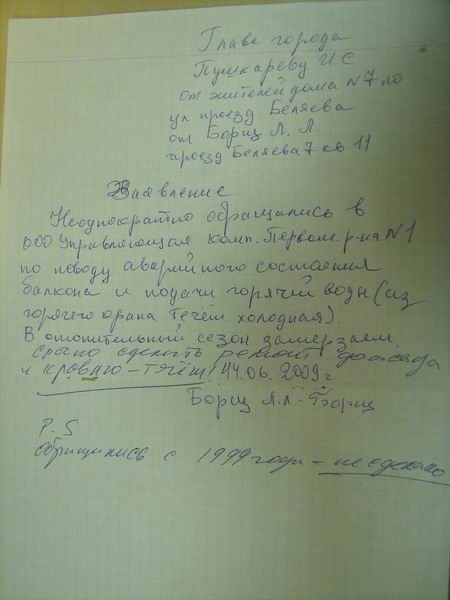 Главе города
Пушкареву И.С
от жителей дома N7 по
ул проезд Беляева
от Борщ Л. Л.
проезд Беляева 7 кв 11
Заявление
Неоднократно обращались в
ООО Управляющая комп. Первом. р-на N1
по поводу аварийного состояния
балкона и подачи горячий воды (из
горячего крана течёт холодная).
В отопительный сезон замерзаем.
срочно сделать ремонт фасада
и кровлю - течёт! 14.06.2009г
Борщ Л.Л - Борщ
P.S
обращались с 1999 года - не сделано